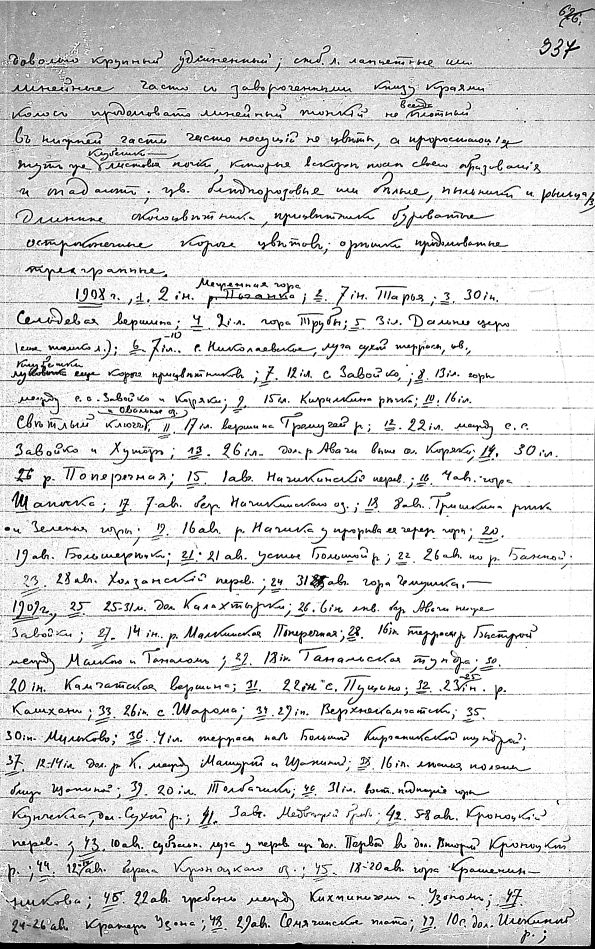 626.
337
довольно крупный удлиненный; стб. л. ланцетные или
линейные часто съ завороченными книзу краями
колосъ продолговато линейный тонкий не всегда плотный
въ нижней части часто несущий не цвѣты, а проростающія
тутъ же клубеньки листовыя почки, которые вскорѣ послѣ своего образованія
и опадаютъ; цв. блѣднорозовые или бѣлые, пыльники и рыльца
длиннѣе околоцвѣтника, прицвѣтники буроватые
остроконечные короче цвѣтовъ; орѣшки продолговатые
трехгранные.
1908 г., 1. 2 iн. Мишенная гора р. Поганка; 2. 7 iн. Тарья; 3. 30 iн.
Сельдевая вершина; 4. 2 iл. гора Трубы; 5. 3 iл. Дальнее озеро
(еще только л.); 6. 7-10 iл. с. Николаевское, луга сухой террасы, цв.,
клубеньки еще короче прицвѣтниковъ; 7. 12 iл. с. Завойко; 8. 13 iл. горы
между с. с. Завойко и Коряки; 9. 15 iл. Киралкина рѣчка; 10. 16 iл.
Свѣтлый ключъ и Овальное оз.; 11. 17 iл. вершина р.; 12. 22 iл. между с. с.
Завойко и Хуторъ; 13. 26 iл. дол. р. Авачи выше сл. Коряки; 14. 30 iл.
р. Поперечная; 15. 1 ав. Начикинский перев.; 16. 4 ав. гора
Шапочка; 17. 7 ав. бер. Начикинскаго оз.; 18. 8 ав. Тришкина рѣчка
и Зеленыя горы; 19. 16 ав. р. Начика у прорыва ее черезъ горы; 20.
19 ав. Большерѣцкъ; 21. 21 ав. устье Большой р.; 22. 26 ав. по р. Банной;
23. 28 ав. Холзанский перев.; 24. 31 ав. гора
1909 г., 25. 25-31 м. дол. Калахтырки; 26. 6 iн. лѣв. бер. Авачи ниже
Завойки; 27. 14 iн. р. Малкинская Поперечная; 28. 16 iн. террасы р. Быстрой
между Малкою и Ганаломъ; 29. 18 iн. Ганальская тундра; 30.
20 iн. Камчатская вершина; 31. 22 iн. с. Пущино; 32. 23-25 iн. р.
Кашханъ; 33. 26 iн. с. Шарома; 34. 29 iн. Верхнекамчатскъ; 35.
30 iн. Мильково; 36. 4 iл. терраса надъ Большой Кирганикской тундрой;
37. 12-14 iл. дол. р. К. между Машурой и Щапиной; 38. 16 iл. лѣсная поляна
близъ Щапиной; 39. 20 iл. Толбачикъ; 40. 31 iл. вост. подножіе горы
Кунчекла, дол. Сухой р.; 41. 3 ав. Медвежий гребень; 42. 5-8 ав. Кроноцкій
перев.; 43. 10 ав. субальп. луга у перев. изъ дол. Первой въ дол. Второй Кроноцкой
р.; 44. 12 ав. берега Кроноцкаго оз.; 45. 18-20 ав. гора Крашенин-
никова; 46. 22 ав. гребень между Кихпинычемъ и Узономъ; 47.
24-26 ав. Кратеръ Узона; 48. 29 ав. Семячинское плато; 49. 10 с. дол.
р.;